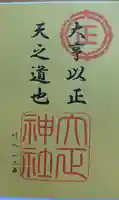 大亨以正
天之道也
正
大正
神社